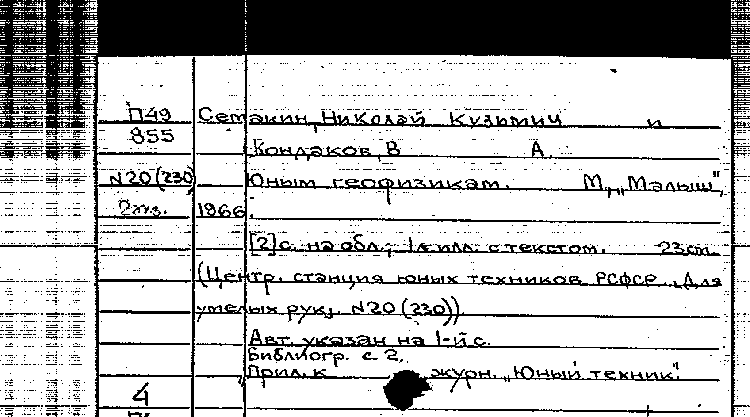 П49 Семакин, Николай Кузьмич и
855 Кондаков, В А.
N20(230) Юным геофизикам. М., „Малыш",
2экз. 1966.
[2] с. на обл.; 1 л. илл. с текстом. 23 см.
(Центр. станция юных техников РСФСР. „Для
умелых рук", N20(230))
Авт. указан на 1-й с.
Библиогр. с 2.
Прил. к журн. „Юный техник".
4